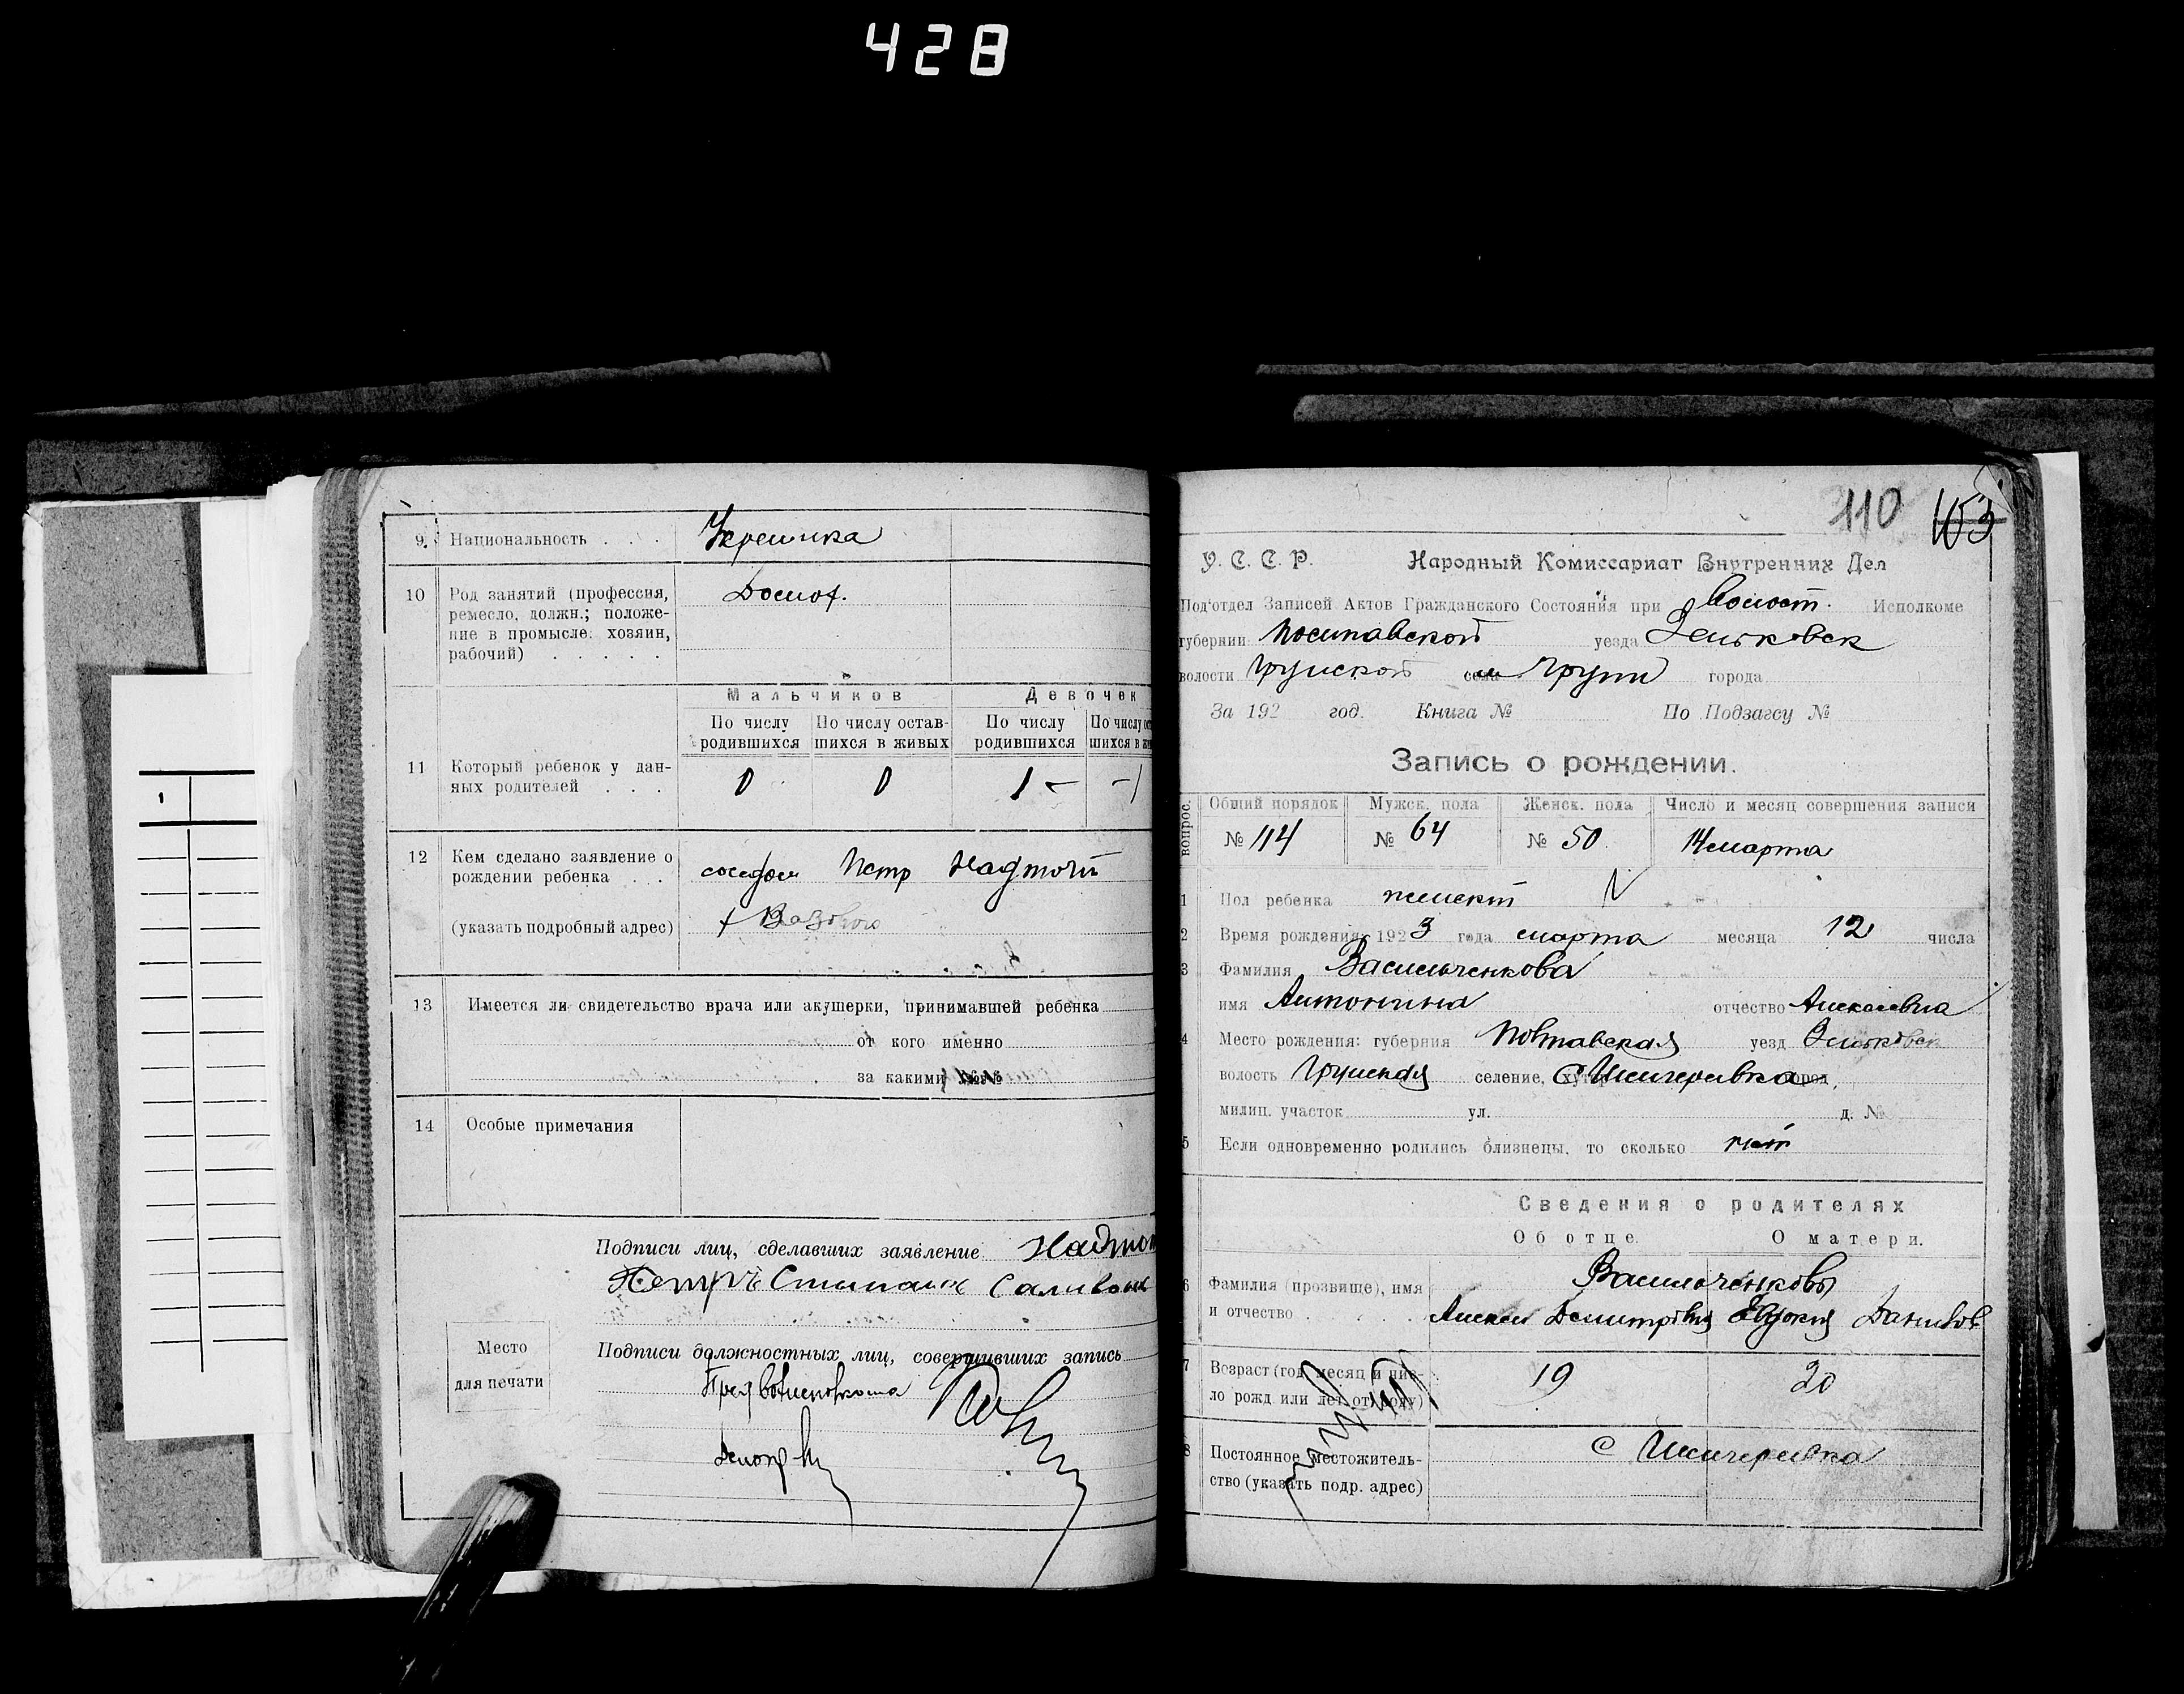 428
9. Национальность . . . Украинка
10 Род занятий (профессия,
ремесло, должн.; положе-
ние в промысле: хозяин,
рабочий) . . . . .
Мальчиков Девочек
По числу родившихся По числу остав-шихся в живых По числу родившихся По числу ос шихся в жи
11 Который ребенок у дан-
ных родителей . . . 0 0 1 - -1
12 Кем сделано заявление о
рождении ребенка . . . соседом Петр Надточий
(указать подробный адрес)
13 Имеется ли свидетельство врача или акушерки, принимавшей ребенка
от кого именно
за какими №№
14 Особые примечания
Подписи лиц, сделавших заявление Надточ
Петръ
Место
для печати
Подписи должностных лиц, совершивших запись
110 103
У. С. С. Р. Народный Комиссариат Внутренних Дел
Под'отдел Записей Актов Гражданского Состояния при Волост. Исполкоме
губернии Полтавской уезда Зеньковск
волости Грунской села Груни города
За 192 год. Книга № По Подзагсу №
Запись о рождении.
вопрос. Общий порядок Мужск. пола Женск. пола Число и месяц совершения записи
№ 114 № 64 № 50 14 марта
1 Пол ребенка женский
2 Время рождения: 1923 года марта месяца 12 числа
3 Фамилия Васильченкова
имя Антонина отчество Алексеевна
4 Место рождения: губерния Полтавская уезд Зеньковск
волость Грунская селение, хутор город
милиц. участок ул. д. №
5 Если одновременно родились близнецы, то сколько нет
Сведения о родителях
Об отце. О матери.
6 Фамилия (прозвище), имя Васильченковы
и отчество . . . . Алексей Димитрович Евдокия Данилов
7 Возраст (год, месяц и чис-
ло рожд. или лет от роду) 19 20
8 Постоянное местожитель-
ство (указать подр. адрес)